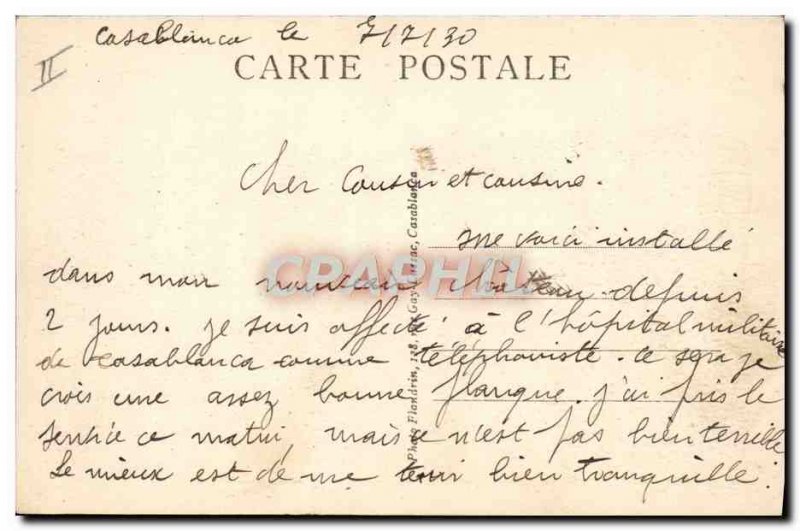 Casablanca le 7/7/30
II
CARTE POSTALE
Cher Cousin et cousine.
me voici installé
dans mon nouveau château depuis
2 jours. je suis affecté à l'hôpital militaire
de Casablanca comme téléphoniste. ce sera je
crois une assez bonne planque. j'ai pris le
service ce matin, mais ce n'est pas bien terrible
Le mieux est de me tenir bien tranquille.
Photo Flandrin, 128, Gay-Lussac, Casablanca
CPAPHIL